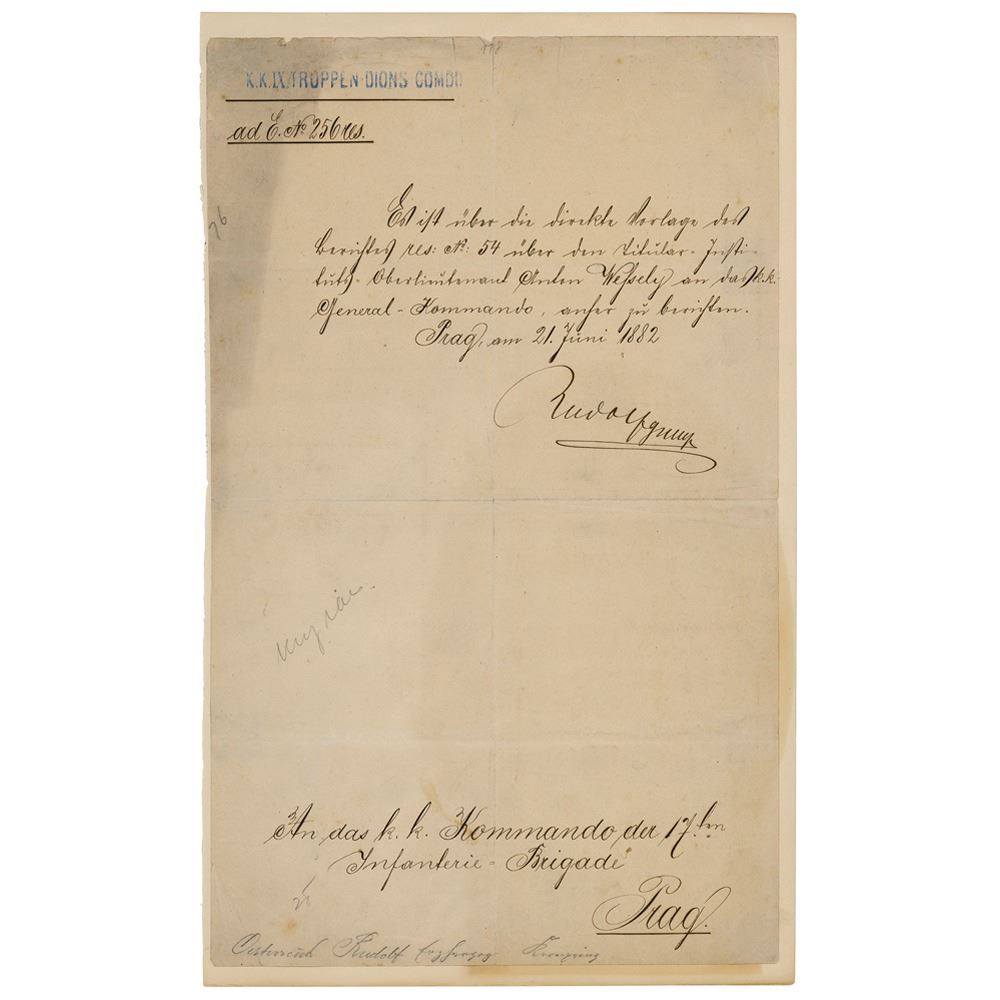 K.K.IX.TRUPPEN-DIONS COMDO
ad E. No 256 res.
Es ist über die direkte Vorlage des
Berichtes res: No: 54 über den Titular-Insti-
tuts-Oberlieutenant Anton Weſsely an das k.k.
General-Kommando, anher zu berichten.
Prag, am 21. Juni 1882
Rudolf
An das k. k. Kommando der 17.ten
Infanterie-Brigade
Prag.
Oesterreich Rudolf Erzherzog Kronprinz